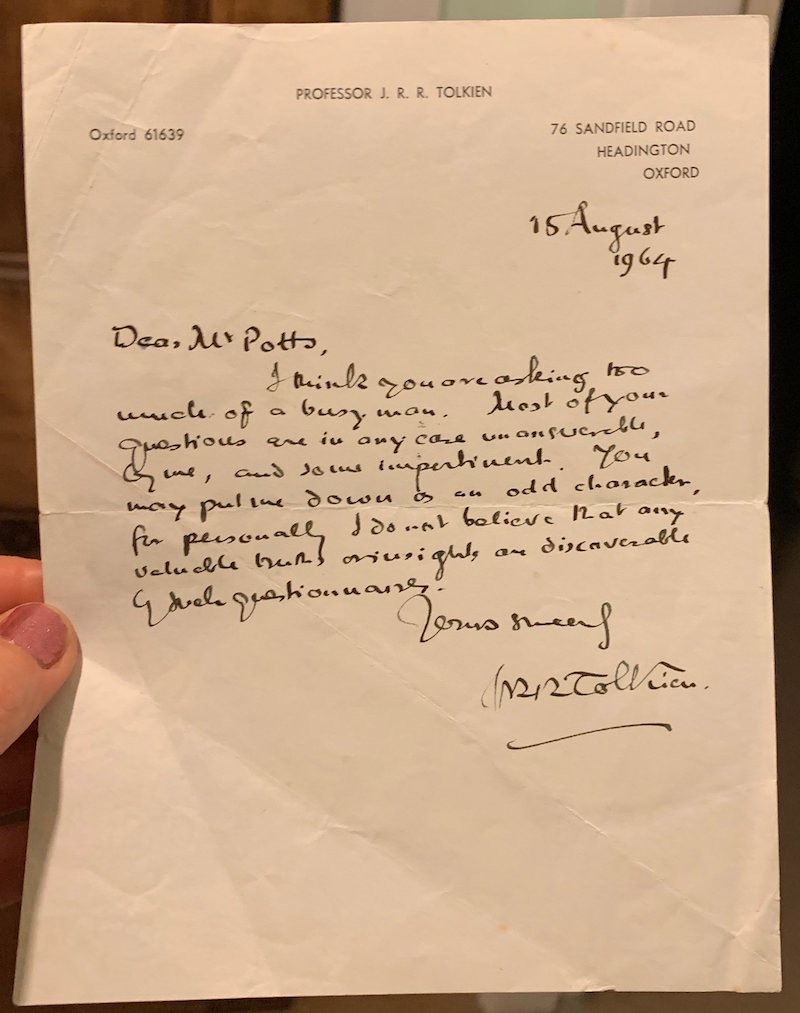 PROFESSOR J. R. R. TOLKIEN
Oxford 61639
76 SANDFIELD ROAD
HEADINGTON
OXFORD
15 August
1964
Dear Mr Potts,
I think you are asking too
much of a busy man. Most of your
questions are in any case unanswerable,
by me, and some impertinent. You
may put me down as an odd character,
for personally I do not believe that any
valuable truths or insights are discoverable
by such questionnaires.
Yours sincerely
JRR Tolkien.